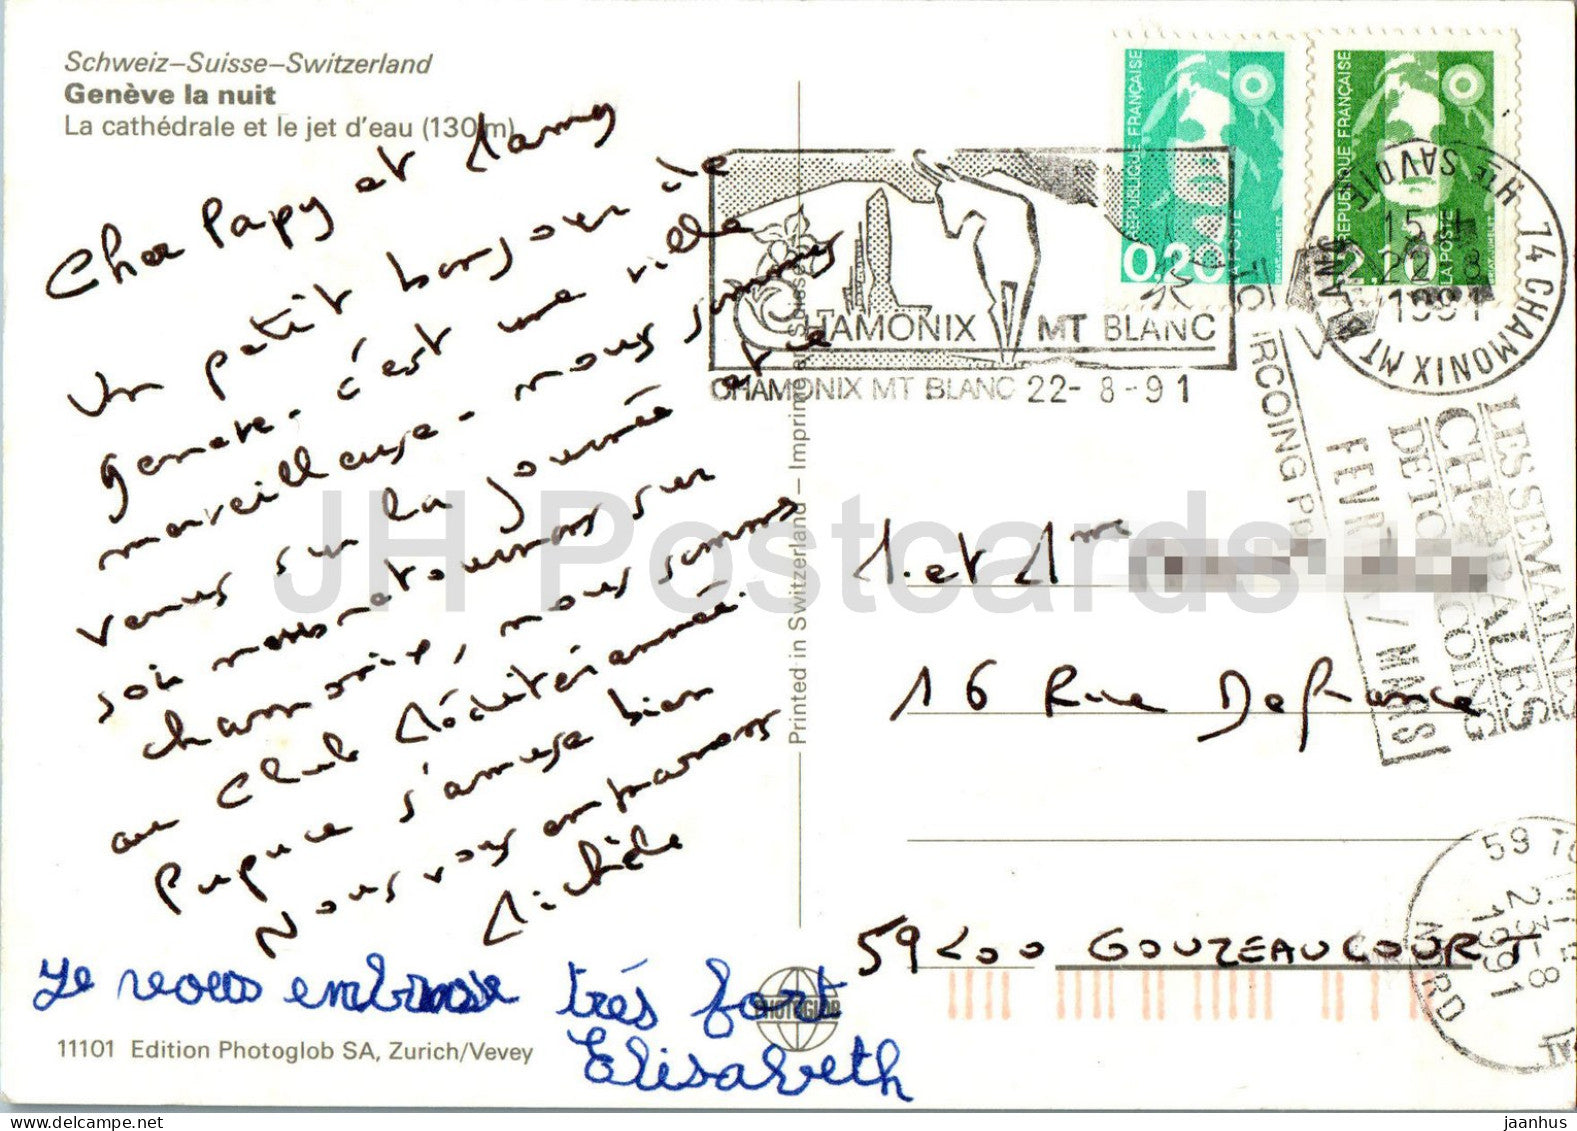 Schweiz–Suisse–Switzerland
Genève la nuit
La cathédrale et le jet d'eau (130 m)
Cher Papy et Mamy
Un petit bonjour de
Genève - c'est une ville
merveilleuse - nous sommes
venus sur la journée et ce
soir nous retournons sur
chamonix, nous sommes
au Club Méditérannée.
Pupuce s'amuse bien
Nous vous embrassons
Michèle
Je vous embrasse très fort
Elisabeth
11101 Edition Photoglob SA, Zurich/Vevey
Printed in Switzerland – Imprimé en Suisse
PHOTOGLOB
REPUBLIQUE FRANÇAISE
0.20
LA POSTE
REPUBLIQUE FRANÇAISE
LA POSTE
CHAMONIX MT BLANC
CHAMONIX MT BLANC 22-8-91
74 CHAMONIX MT BLANC
HTE SAVOIE
15 H
22-8
1991
LES SEMAINES
CHORALES
DE TOURCOING
FEVRIER / MARS
M. et Mme
16 Rue De France
59 GOUZEAUCOURT
59 TO
23-8
1991
NORD
JH Postcards
delcampe.net
jaanhus